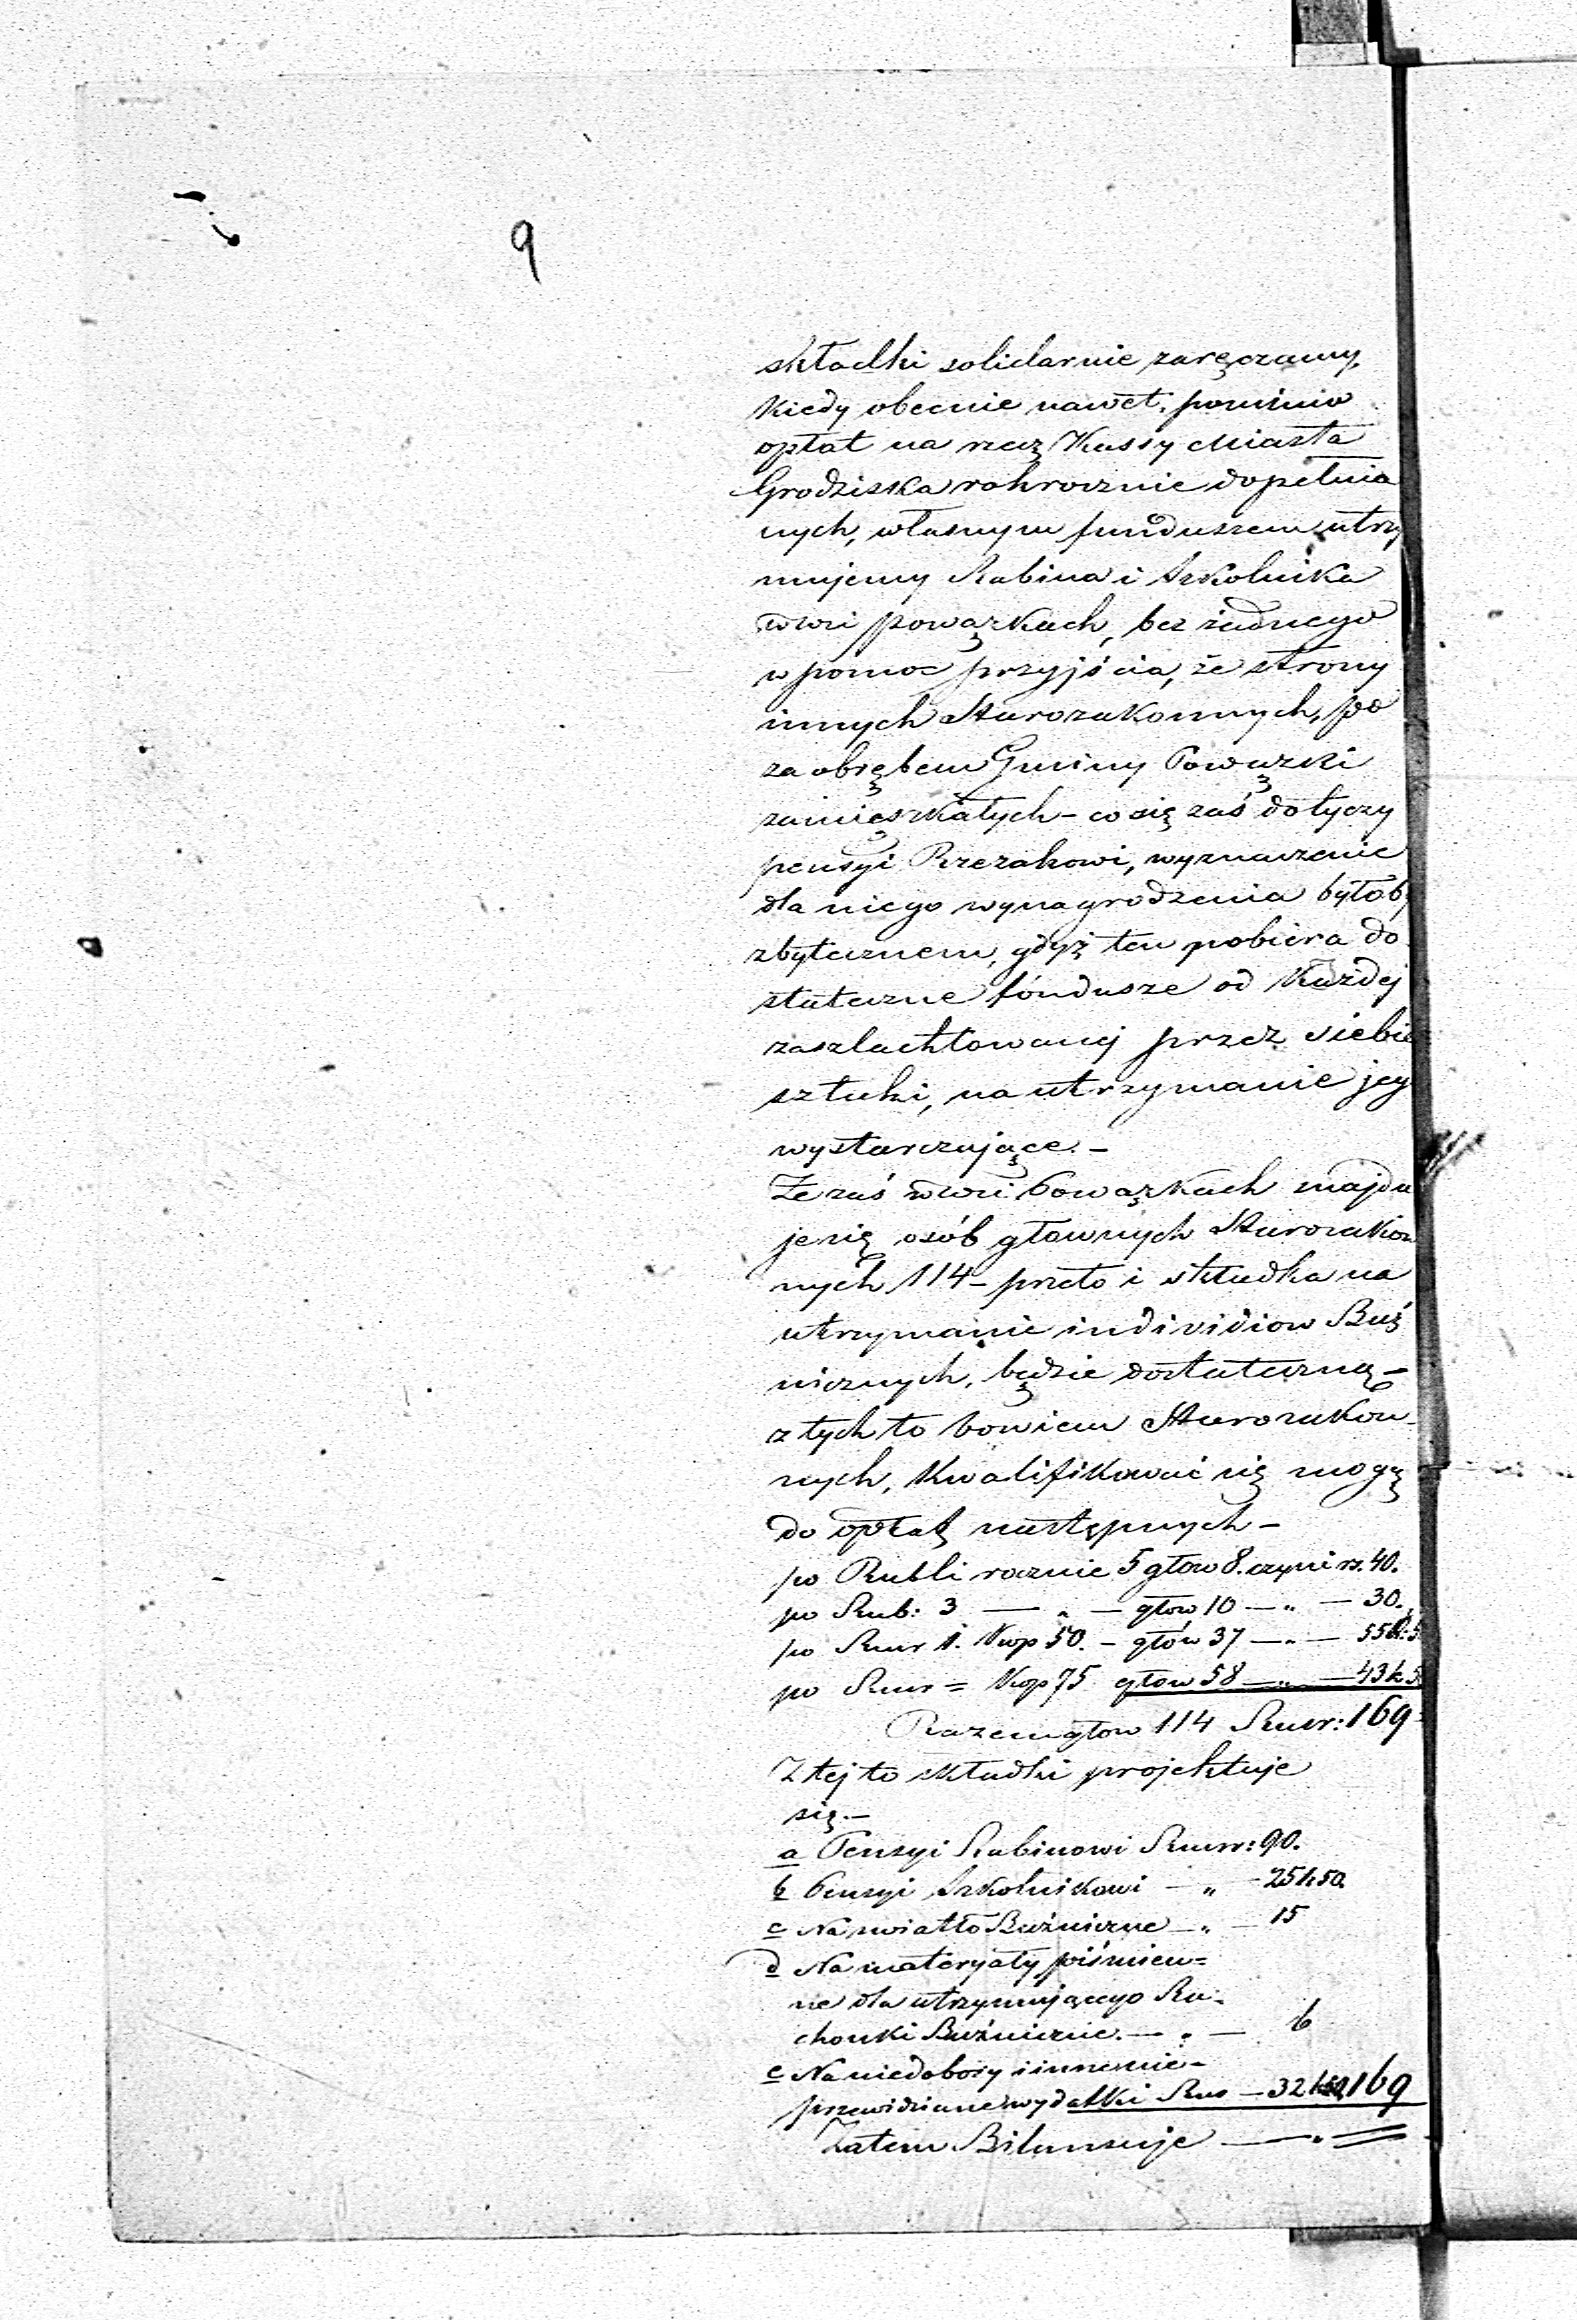 9
składki solidarnie zaręczamy,
kiedy obecnie nawet, pomimo
opłat na rzecz Kassy Miasta
Grodziska rokrocznie dopełnia
nych, własnym funduszem utrzy
mujemy Rabina i Szkolnika
wwsi powązkach, bez żadnego
w pomoc przyjścia, że strony
innych Starozakonnych, po
za obrębem Gminy Powązki
zamięszkałych – co się zaś dotyczy
pensyi Rzezakowi, wyznaczenie
dla niego wynagrodzenia byłoby
zbytecznem, gdyż ten pobiera do
stateczne fóndusze od Każdej
zaszlachtowanej przez siebie
sztuki, na utrzymanie jeg
wystarczające. –
Że zaś wwsi Powązkach znajdu
je się osób głownych Starozakon
nych 114 – przeto i składka na
utrzymanie individiow Buż
nicznych, będzie dostateczną –
z tych to bowiem Starozakon
nych, Kwalifikować się mogą
do opłat następnych –
po Rubli rocznie 5 głow 8. czyni rs. 40.
po Rub: 3 — „ — głow 10 — „ — 30.
po Rusr 1. Kop 50. – głów 37 — „ — 55 k: 5
po Rusr = Kop 75 głow 58 — „ — 43 k 5
Razem głow 114 Rusr: 169
Z tej to składki projektuje
się. –
a Pensyi Rabinowi Rusr: 90.
b Pensyi Szkolnikowi — „ – 25 k 50
c Na swiatło Buźniczne — „ — 15
d Na materyały piśmien=
ne dla utrzymującego Ra-
chonki Buźniczne. — „ — 6
e Na niedobory i inne nie-
przewidziane wydatki Rus — 32 k 50, 169
Zatem Bilansuje — „ =